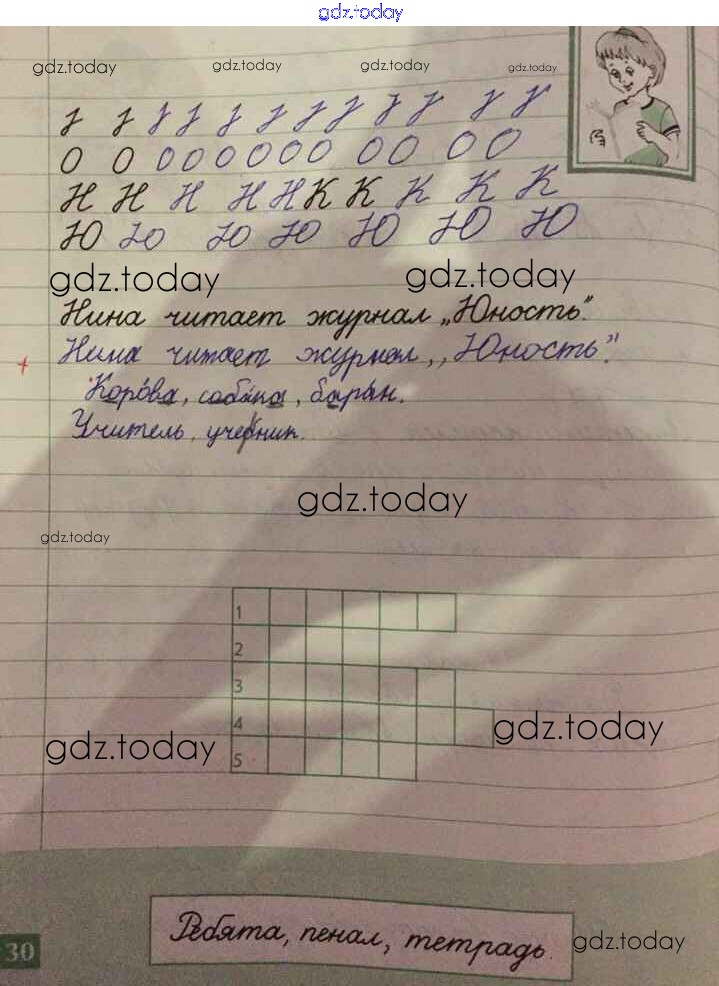 gdz.today
gdz.today gdz.today gdz.today gdz.today
О О О О О О О О О О О О
Н Н Н Н Н К К К К К
Ю Ю Ю Ю Ю Ю Ю
gdz.today gdz.today
Нина читает журнал „Юность”.
Нина читает журнал „Юность”.
Корова, собака, баран.
Учитель, ученик.
gdz.today
gdz.today
1
2
3
4
5
gdz.today gdz.today
Ребята, пенал, тетрадь.
gdz.today
30